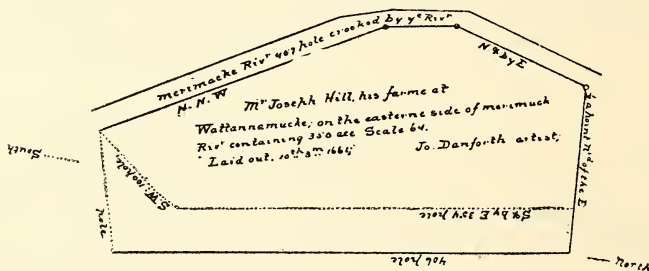 merimacke Rivr pole crooked by ye Rivr
N. N. W
N 4 by E
Mr Joseph Hill, his farme at
Wattannamucke, on the easterne side of merimuck
Rivr containing Scale 64.
Laid out. 10th 8m 1661, Jo. Danforth artist,
South
S.W. 100 pole
pole
S 4 by E 354 pole
a point Nd of the E
406 pole
North